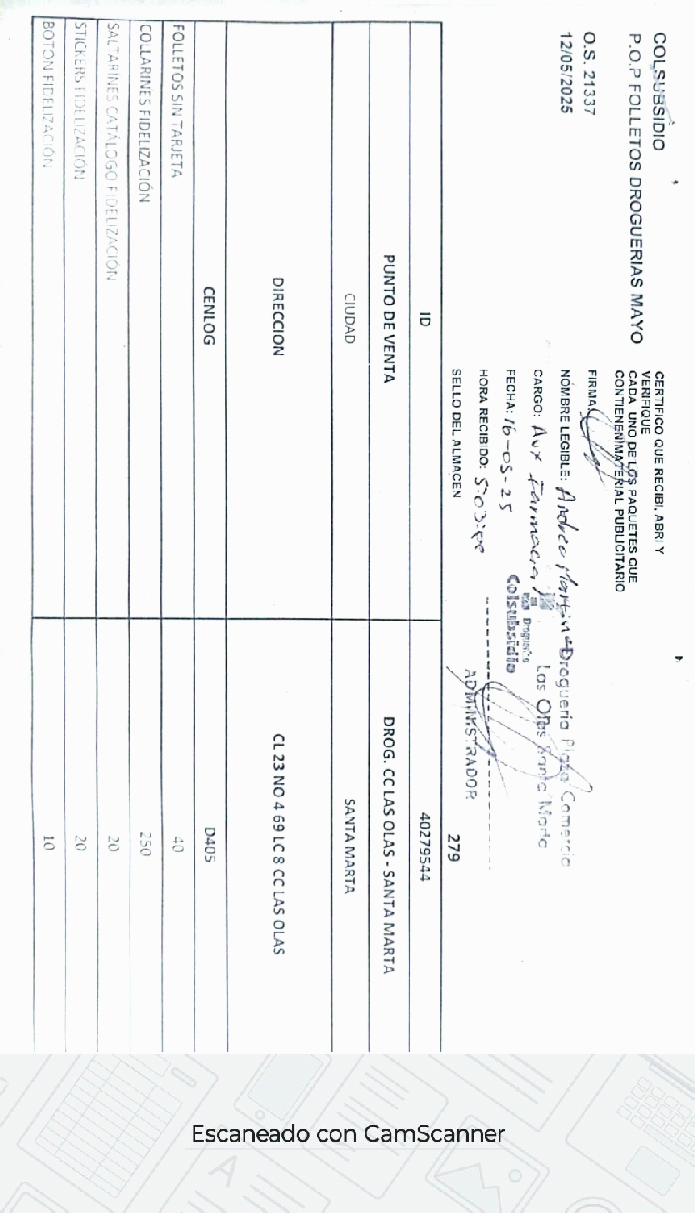 COLSUBSIDIO
P.O.P FOLLETOS DROGUERIAS MAYO
O.S. 21337
12/05/2025
CERTIFICO QUE RECIBI, ABRI Y
VERIFIQUE
CADA UNO DE LOS PAQUETES QUE
CONTIENEN MATERIAL PUBLICITARIO
FIRMA:
NOMBRE LEGIBLE: Andrea
CARGO: Aux Farmacia
FECHA: 16-05-25
HORA RECIBIDO:
SELLO DEL ALMACEN
Drogueria Plaza Comercial
Las Olas Santa Marta
Droguería
Colsubsidio
ADMINISTRADOR
279
ID 40279544
PUNTO DE VENTA DROG. CC LAS OLAS - SANTA MARTA
CIUDAD SANTA MARTA
DIRECCION CL 23 NO 4 69 LC 8 CC LAS OLAS
CENLOG D405
FOLLETOS SIN TARJETA 40
COLLARINES FIDELIZACIÓN 250
SALTARINES CATÁLOGO FIDELIZACIÓN 20
STICKERS FIDELIZACIÓN 20
BOTON FIDELIZACIÓN 10
Escaneado con CamScanner